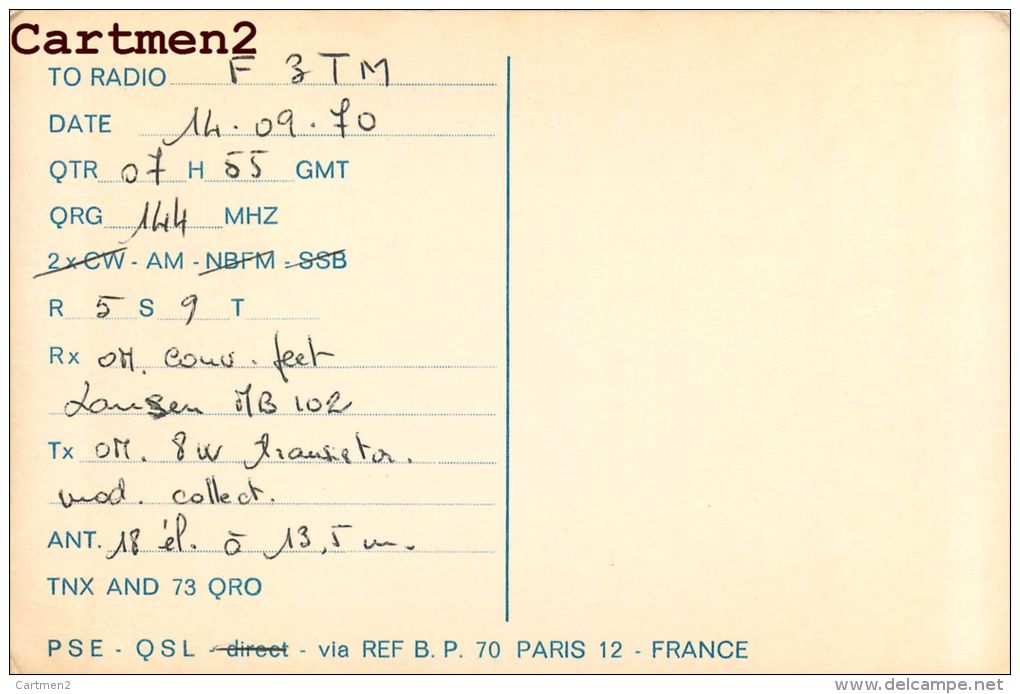 Cartmen2
TO RADIO F 3 TM
DATE 14.09.70
QTR 07 H 55 GMT
QRG 144 MHZ
2 x CW - AM - NBFM - SSB
R 5 S 9 T
Rx OM. conv. feet
MB 102
Tx OM. 8W transistor.
mod. collect.
ANT. 18 él. à 13,5 m.
TNX AND 73 QRO
PSE - QSL - direct - via REF B. P. 70 PARIS 12 - FRANCE
Cartmen2
delcampe.net